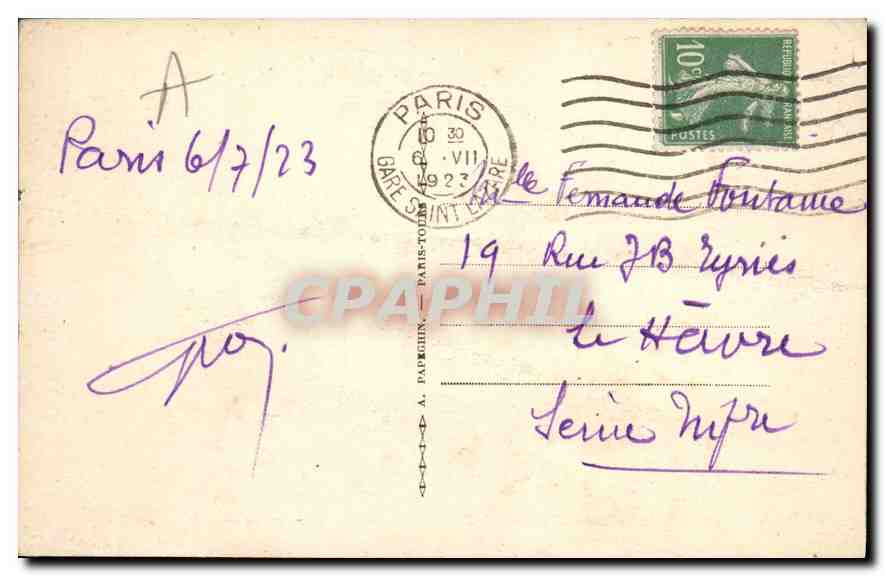 A
Paris 6/7/23
PARIS
10 30
6 . VII
1923
GARE SAINT LAZARE
10c
POSTES
REPUBLIQUE FRANÇAISE
Mlle Fernande Fontaine
19 Rue JB Eyriès
Le Hâvre
Seine Infre
A. PAPEGHIN. — PARIS-TOURS
CPAPHIL